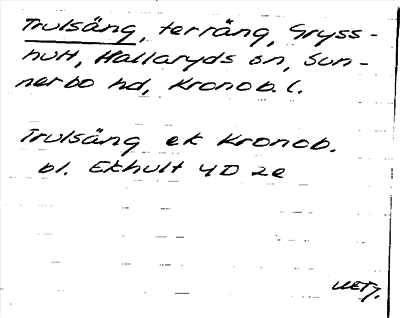 Trulsäng, terräng, Gryss-
hult, Hallaryds sn, Sun-
nerbo hd, Kronob. l.
Trulsäng ek Kronob.
bl. Ekhult 4D 2e